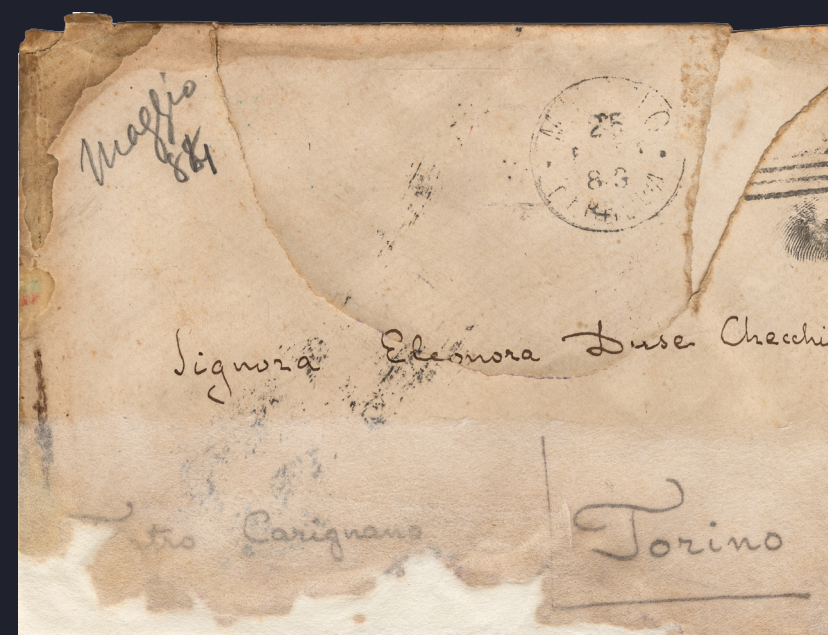 Maggio
884
25
8 S
Signora Eleonora Duse Checchi
Carignano
Torino